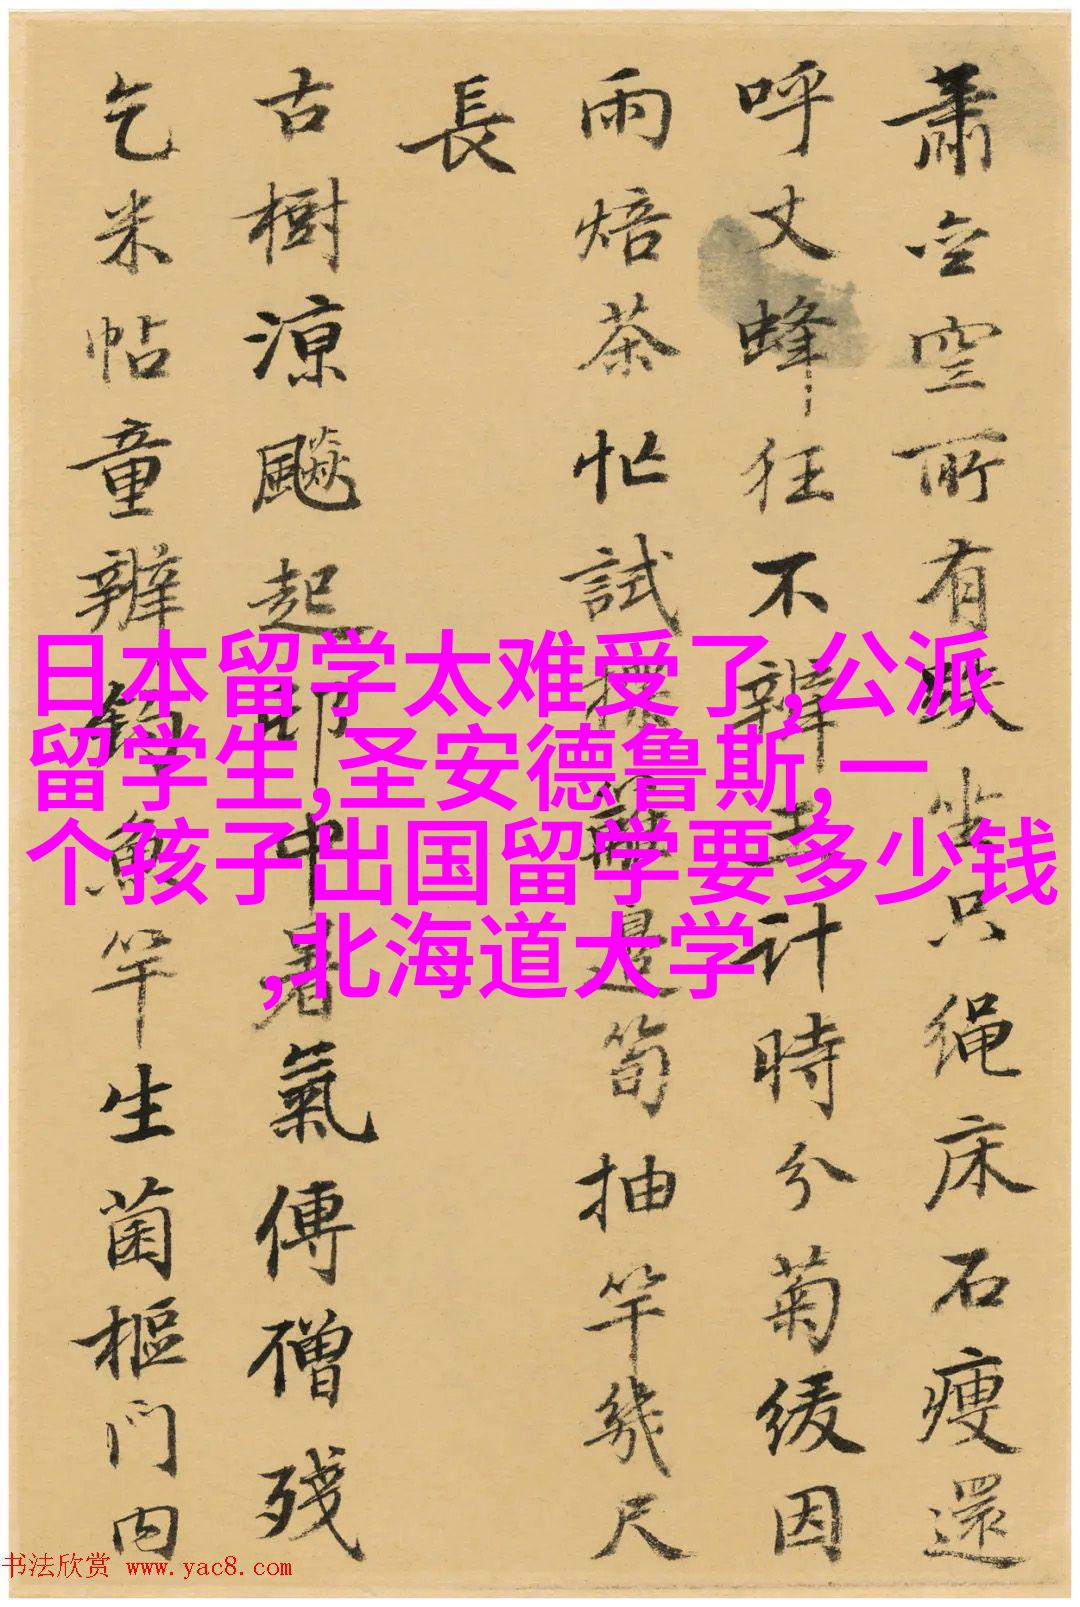 蕭然空所有趺坐只绳床石瘦還
呼丈蜂狂不辦王計時分菊緩因
雨焙茶忙試標邊筍抽竿幾尺
長
古樹涼飈起中暑氣傳僧殘
乞米帖童辦釣魚竿生菌樞門内
日本留学太难受了,公派
留学生,圣安德鲁斯,一
个孩子出国留学要多少钱
,北海道大学
书法欣赏 www.yac8.com